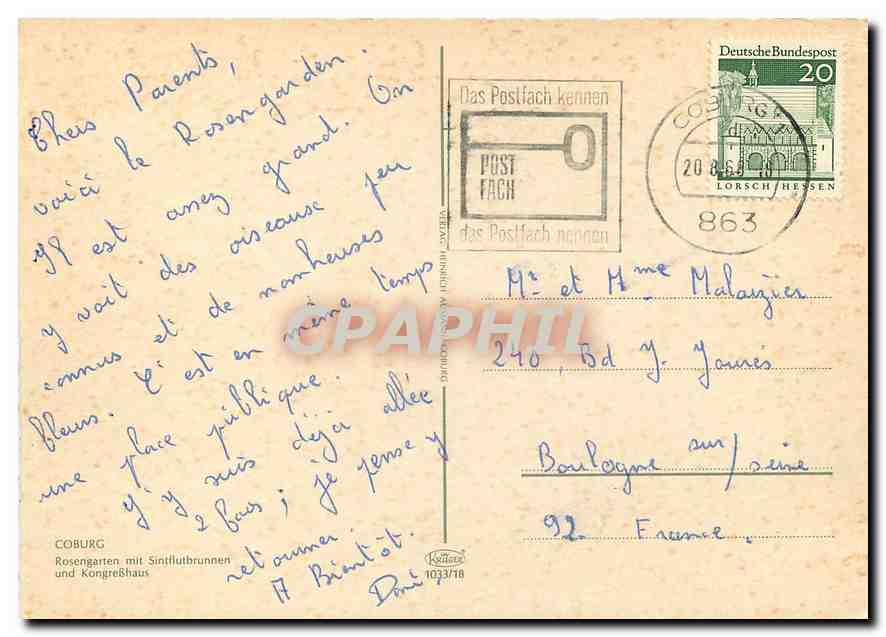 Chers Parents,
voici le Rosengarden. On
y voit des oiseaux peu
Il est assez grand.
connus et de nombreuses
fleurs. C'est en même temps
une place publique.
J'y suis déjà allée
2 fois ; je pense y
retourner.
A Bientôt.
COBURG
Rosengarten mit Sintflutbrunnen
und Kongreßhaus
Krüger
1033/18
VERLAG HEINRICH COBURG
CPAPHIL
Das Postfach kennen
POST
FACH
das Postfach nennen
COBURG
20.8.6
863
Deutsche Bundespost
20
LORSCH/HESSEN
Mr et Mme Malaizier
240, Bd J. Jaurés
Boulogne sur/seine
92. France.